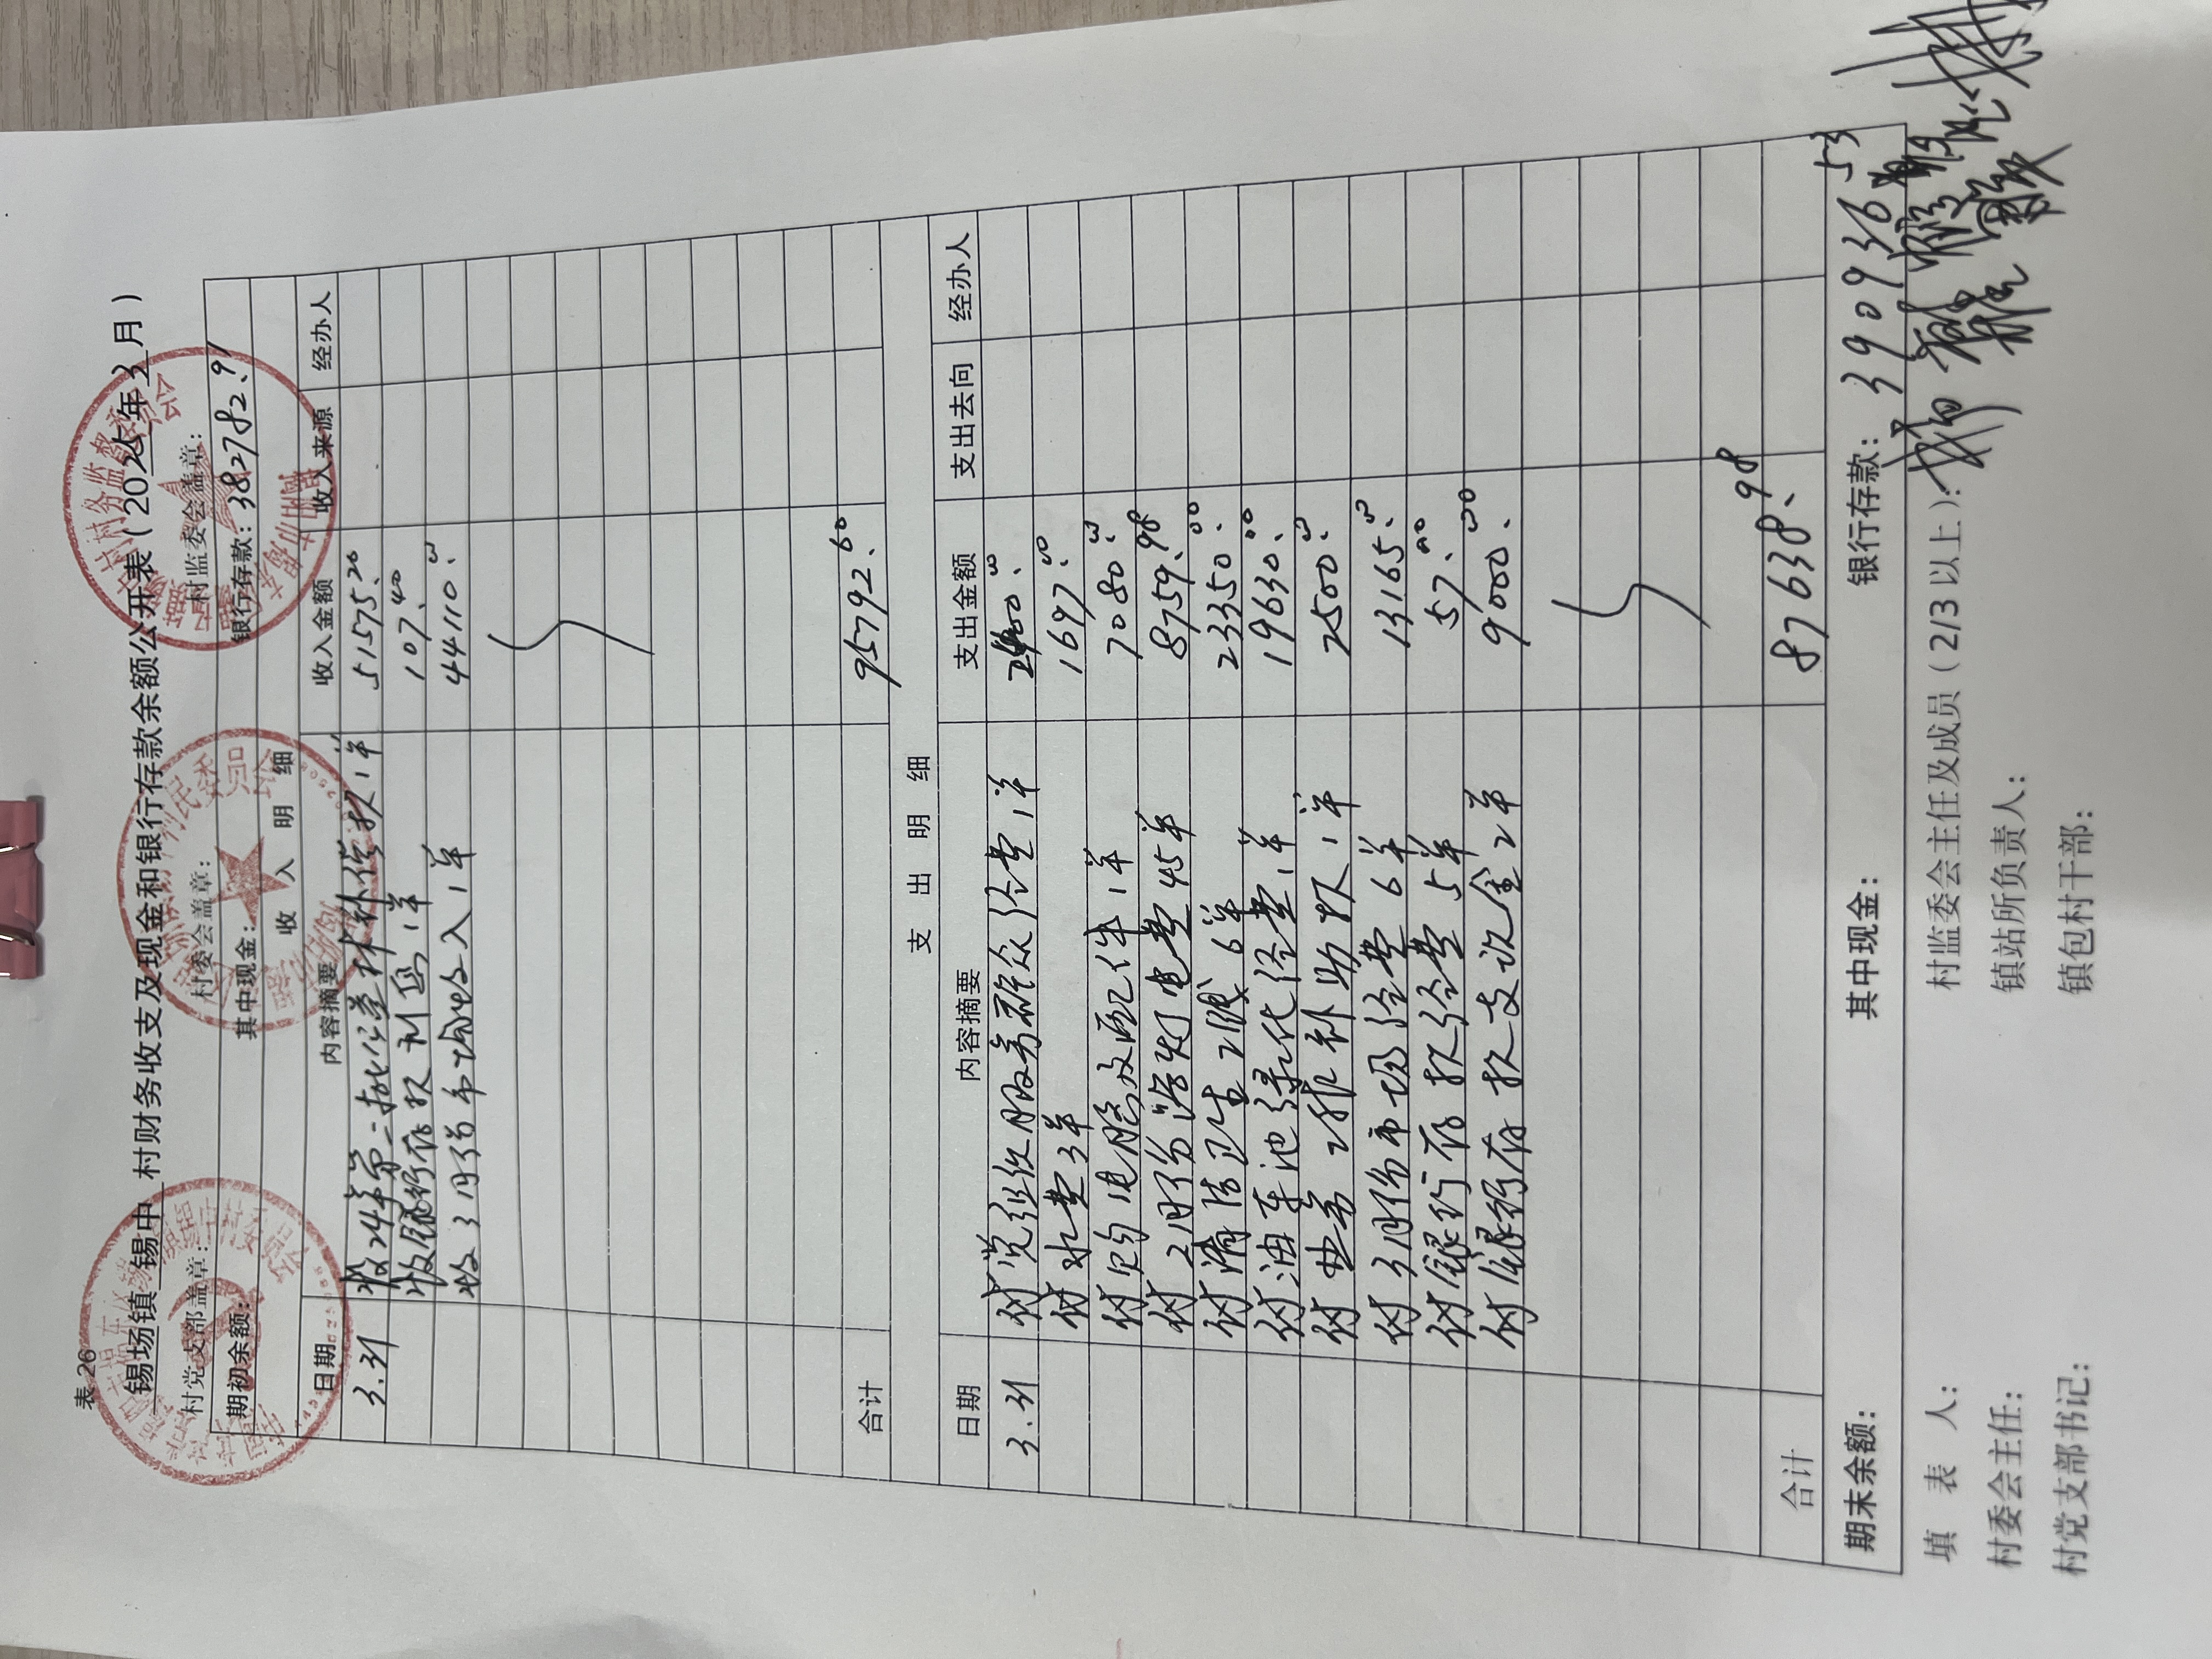 表 26
锡场镇 锡中 村财务收支及现金和银行存款余额公开表（2025年3月）
村党支部盖章： 村委会盖章： 村监委会盖章：
期初余额： 其中现金： 银行存款：382782.91
收 入 明 细
日期 内容摘要 收入金额 收入来源 经办人
3.31 收24年第二批公益林补偿款1单 51575.20
收银行存款利息1单 107.40
收3月份市场收入1单 44110.00
合计 95792.60
支 出 明 细
日期 内容摘要 支出金额 支出去向 经办人
3.31 付党组织服务群众经费1单 2400.00
付水费3单 1697.00
付购电脑及配件1单 7080.00
付2月份路灯电费45单 8759.98
付清洁卫生工作6单 23350.00
付油车池绿化经费1单 19630.00
付业务工作补助款1单 2500.00
付3月份市场经费6单 13165.00
付银行存款经费5单 57.00
付银行存款支议金2单 9000.00
合计 87638.98
期末余额： 其中现金： 银行存款：390936.53
填 表 人： 村监委会主任及成员（2/3以上）：
村委会主任： 镇站所负责人：
村党支部书记： 镇包村干部：